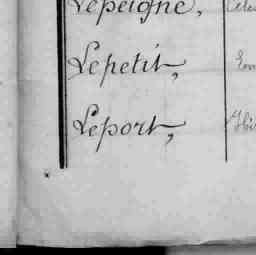 Lepeigne,
Lepetit,
Leport,